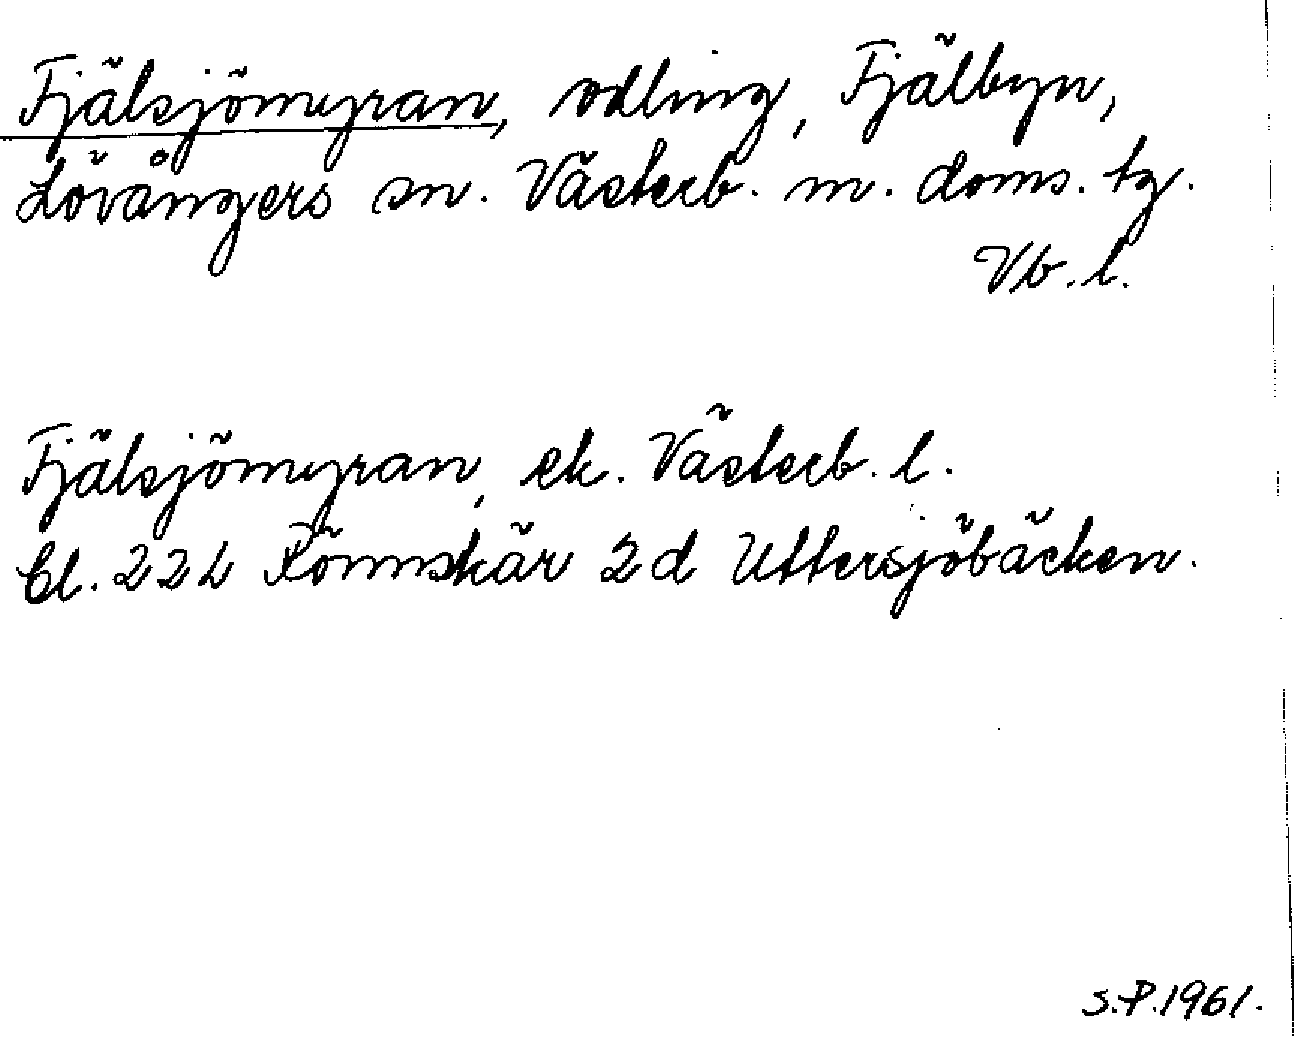 Fjälsjömyran, odling, Fjälbyn,
Lövångers sn. Västerb. m. doms. tg.
Vb. l.
Fjälsjömyran, ek. Västerb. l.
Bl. 22L Rönnskär 2d Uttersjöbäcken.
S.P. 1961.